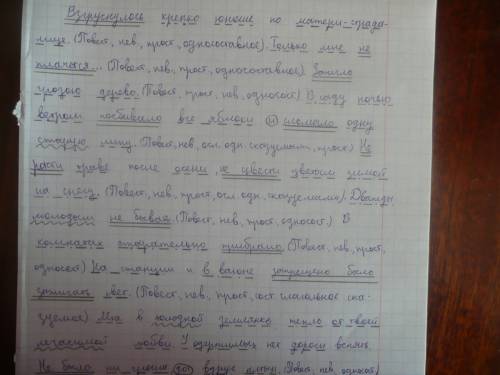 Взгрустнулось крепко юноше по матери-страда-
лице. (Повест., нев., прост., односоставное). Только мне не
плачется... (Повест., нев., прост., односоставное). Зажгло
грозою дерево. (Повест., прост., нев., односост.) В саду ночью
ветром посбивало все яблоки и сломало одну
старую липу. (Повест., нев., осл. одн. сказуемыми, прост.) Не
расти траве после осени, не цвести цветам зимой
на снегу. (Повест., нев., прост., осл. одн. сказуемыми). Дважды
молодым не бывать. (Повест., нев., прост., односост.) В
комнатах старательно прибрано. (Повест., нев., прост.,
односост.) На станции и в вагоне запрещено было
зажигать свет. (Повест., нев., прост., сост. глагольное ска-
зуемое). Мне в холодной землянке тепло от твоей
негасимой любви. У одержимых нет дороги вспять.
Не было ни гроша, да вдруг алтын. (Повест., нев., односост.)